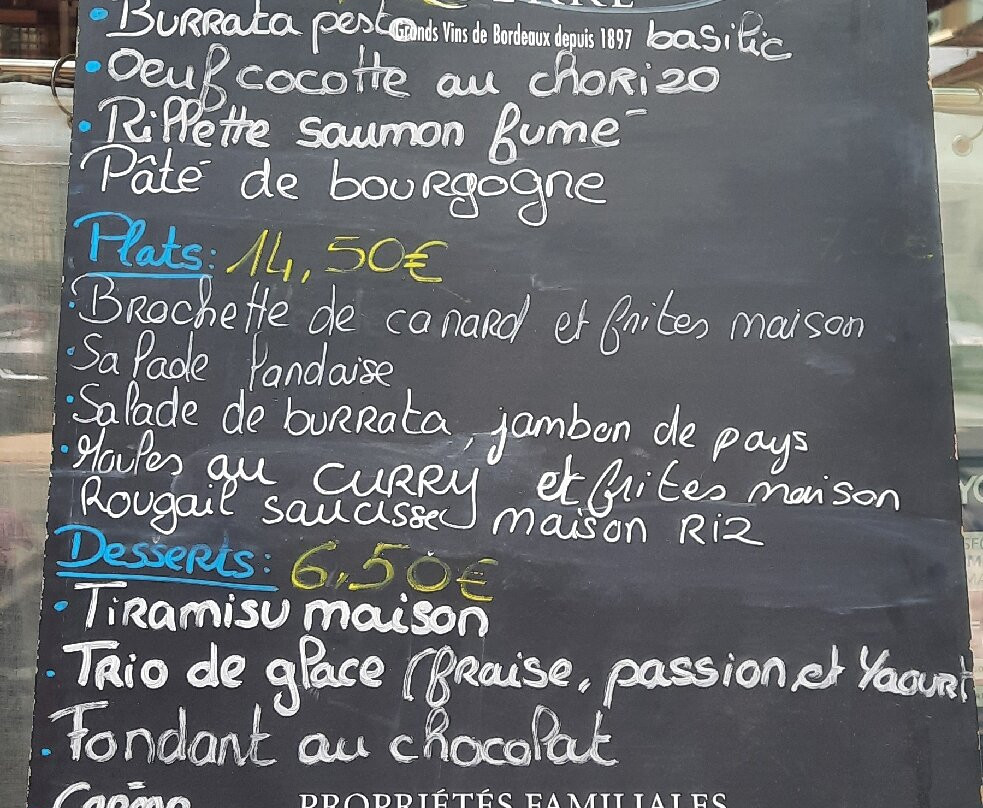 • Burrata pesto basilic
Grands Vins de Bordeaux depuis 1897
• Oeuf cocotte au chorizo
• Rillette saumon fumé
Pâté de bourgogne
Plats: 14,50€
• Brochette de canard et frites maison
• Salade landaise
• Salade de burrata, jambon de pays
• Moules au curry et frites maison
Rougail saucisse maison Riz
Desserts: 6,50€
• Tiramisu maison
• Trio de glace (fraise, passion et Yaourt
• Fondant au chocolat
PROPRIÉTÉS FAMILIALES